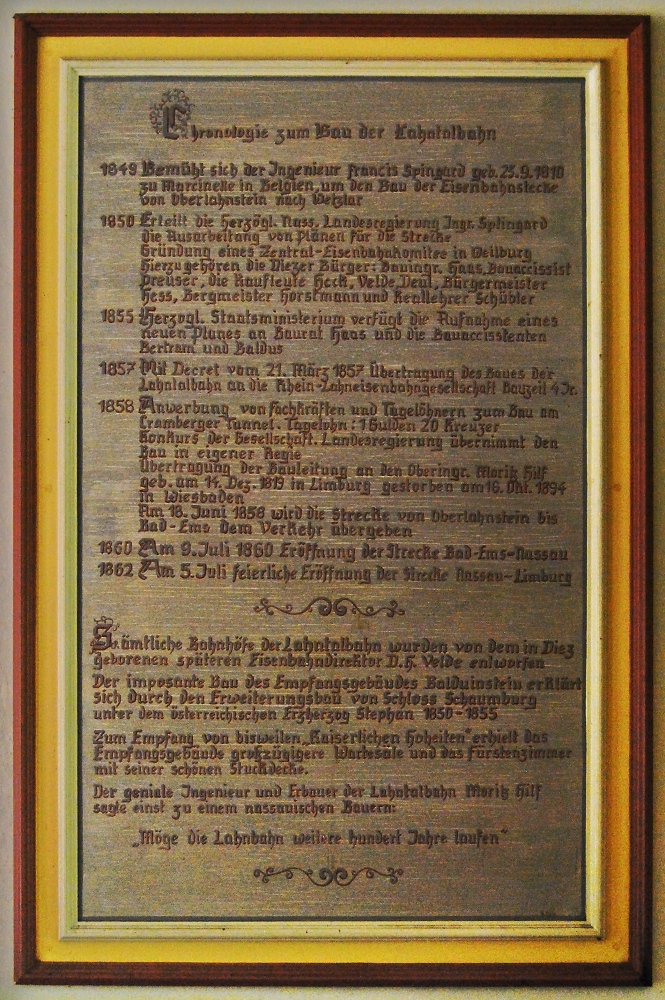 Chronologie zum Bau der Lahntalbahn
1849 Bemüht sich der Ingenieur Francis Spingard geb. 23.9.1810
zu Marcinelle in Belgien, um den Bau der Eisenbahnstecke
von Oberlahnstein nach Wetzlar
1850 Erteilt die Herzögl. Nass. Landesregierung Ingr. Splingard
die Ausarbeitung von Plänen für die Strecke
Gründung eines Zentral-Eisenbahnkomitee in Weilburg
Hierzu gehören die Diezer Bürger: Bauingr. Haas, Bauaccissist
Preußer, die Kaufleute Heck, Velde, Deul, Bürgermeister
Hess, Bergmeister Horstmann und Reallehrer Schübler
1855 Herzogl. Staatsministerium verfügt die Aufnahme eines
neuen Planes an Baurat Haas und die Bauaccisstenten
Bertram und Baldus
1857 Mit Decret vom 21. März 1857 Übertragung des Baues der
Lahntalbahn an die Rhein-Lahneisenbahngesellschaft Bauzeit 4 Jr.
1858 Anwerbung von Fachkräften und Tagelöhnern zum Bau am
Cramberger Tunnel. Tagelohn: 1 Gulden 20 Kreuzer
Konkurs der Gesellschaft. Landesregierung übernimmt den
Bau in eigener Regie
Übertragung der Bauleitung an den Oberingr. Moritz Hilf
geb. am 14. Dez. 1819 in Limburg gestorben am 16. Okt. 1894
in Wiesbaden
Am 18. Juni 1858 wird die Strecke von Oberlahnstein bis
Bad-Ems dem Verkehr übergeben
1860 Am 9. Juli 1860 Eröffnung der Strecke Bad-Ems-Nassau
1862 Am 5. Juli feierliche Eröffnung der Strecke Nassau-Limburg
Sämtliche Bahnhöfe der Lahntalbahn wurden von dem in Diez
geborenen späteren Eisenbahndirektor D.H. Velde entworfen
Der imposante Bau des Empfangsgebäudes Balduinstein erklärt
sich durch den Erweiterungsbau von Schloss Schaumburg
unter dem österreichischen Erzherzog Stephan 1850-1855
Zum Empfang von bisweilen „Kaiserlichen Hoheiten" erhielt das
Empfangsgebäude großzügigere Wartesäle und das Fürstenzimmer
mit seiner schönen Stuckdecke.
Der geniale Ingenieur und Erbauer der Lahntalbahn Moritz Hilf
sagte einst zu einem nassauischen Bauern:
„Möge die Lahnbahn weitere hundert Jahre laufen"